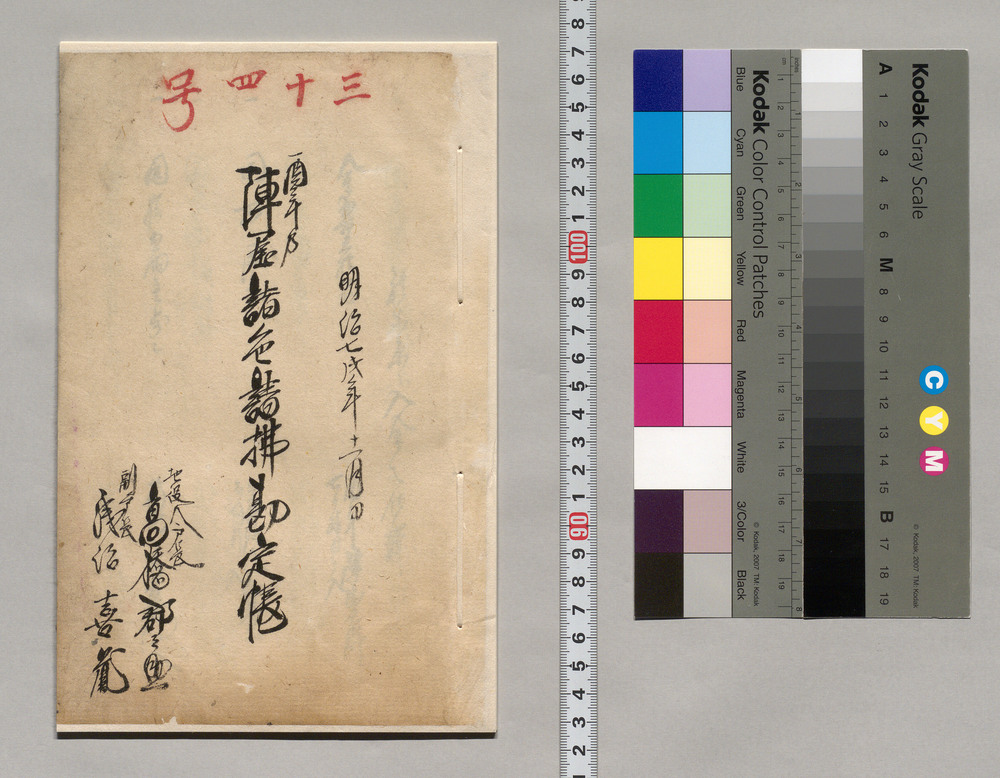 三十四号
明治七戌年十一月日
酉年分
陣屋諸色諸払勘定帳
高橋郡之助
副
喜
8
7
6
5
4
3
2
1
100
9
8
7
6
5
4
3
2
1
90
9
8
7
6
5
4
3
2
Kodak Color Control Patches
Blue
Cyan
Green
Yellow
Red
Magenta
White
3/Color
Black
© Kodak, 2007 TM: Kodak
cm
1
2
4
5
6
7
8
9
10
11
12
13
14
15
16
17
18
19
inches
1
2
3
4
5
6
7
8
Kodak Gray Scale
A
1
2
3
4
5
6
M
8
9
10
11
12
13
14
15
B
17
18
19
C
Y
M
© Kodak, 2007 TM: Kodak